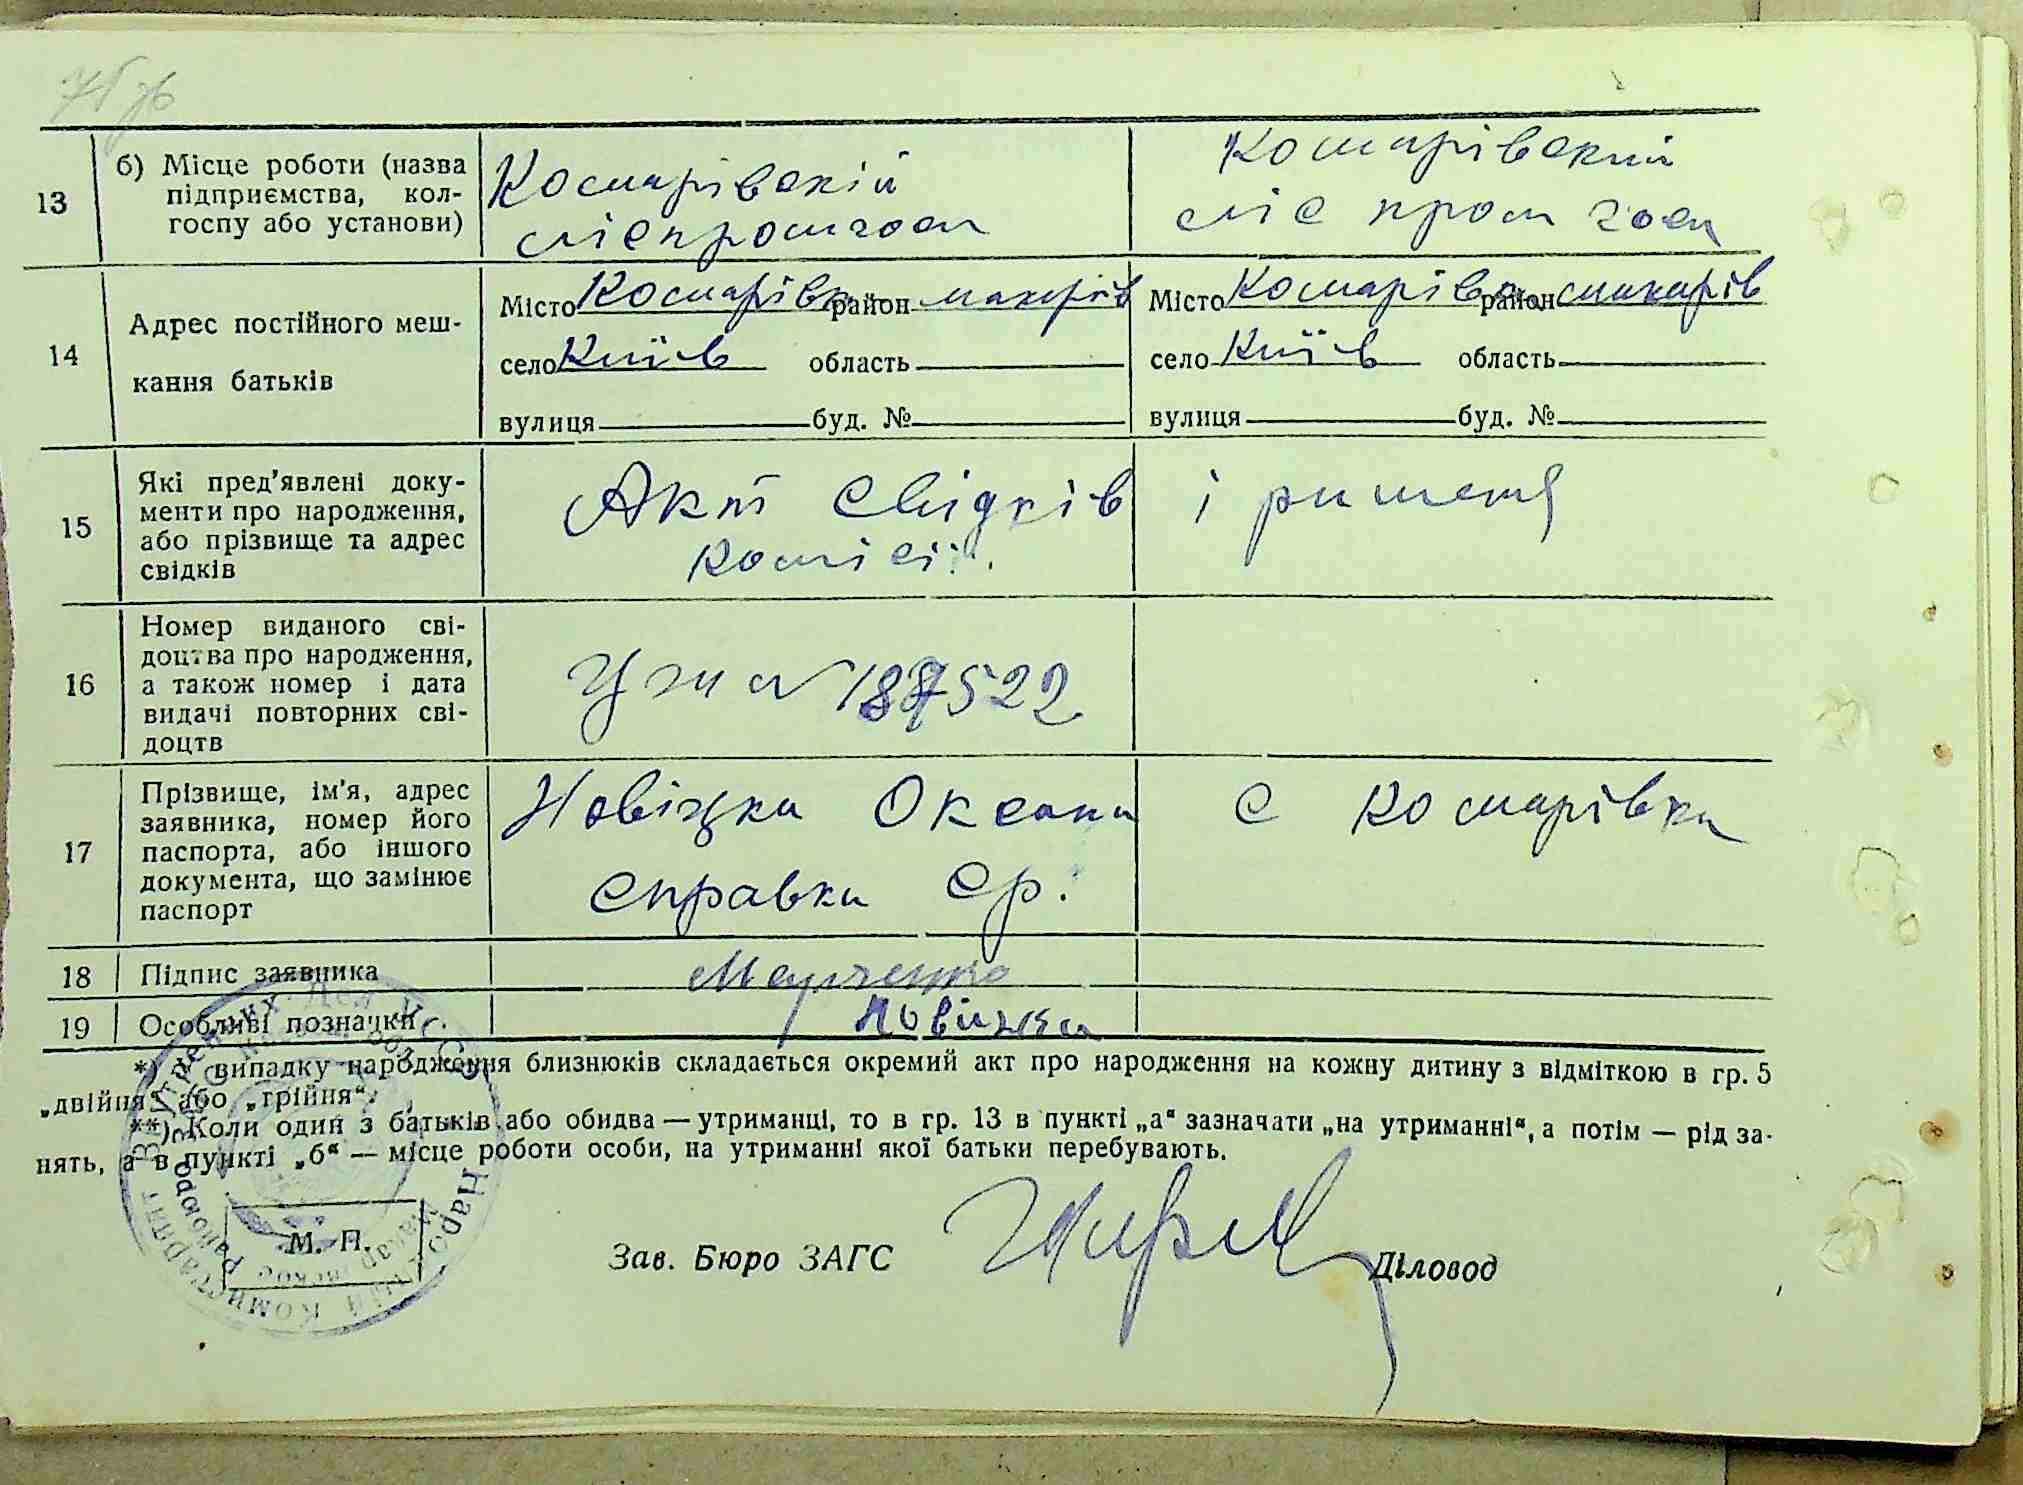 13
б) Місце роботи (назва
підприємства, кол-
госпу або установи)
Комарівскій
ліспромгосп
Комарівский
ліс пром госп
14
Адрес постійного меш-
кання батьків
Місто Комарівка район макарів
село Київ область
вулиця буд. №
Місто Комарівка район макарів
село Київ область
вулиця буд. №
15
Які пред'явлені доку-
менти про народження,
або прізвище та адрес
свідків
Акт свідків і ришення
комісії.
16
Номер виданого сві-
доцтва про народження,
а також номер і дата
видачі повторних сві-
доцтв
187522
17
Прізвище, ім'я, адрес
заявника, номер його
паспорта, або іншого
документа, що замінює
паспорт
Новіцка Оксана с Комарівка
справка ср.
18
Підпис заявника
19
Особливі позначки
*) У випадку народження близнюків складається окремий акт про народження на кожну дитину з відміткою в гр. 5
„двійня“ або „трійня“.
**) Коли один з батьків або обидва — утриманці, то в гр. 13 в пункті „а“ зазначати „на утриманні“, а потім — рід за-
нять, а в пункті „б“ — місце роботи особи, на утриманні якої батьки перебувають.
М. П.
Зав. Бюро ЗАГС
Діловод